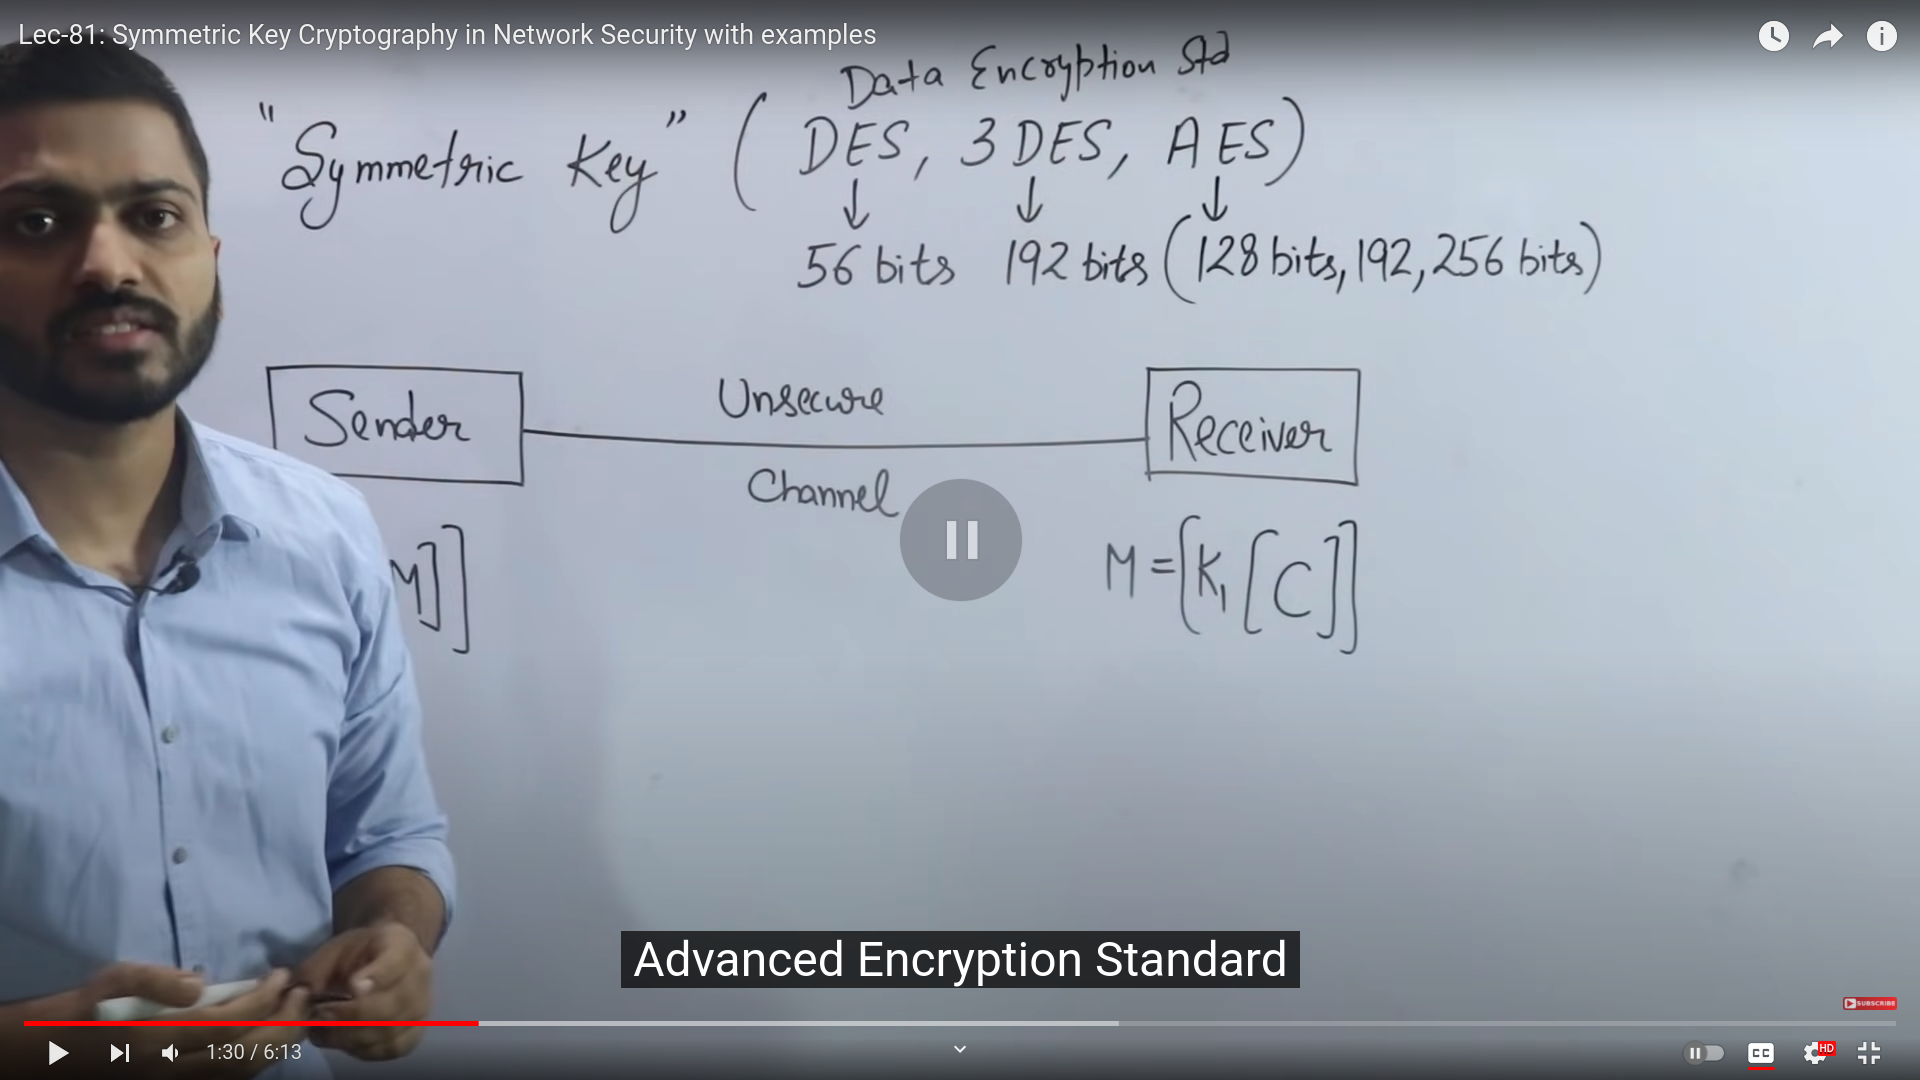 Lec-81: Symmetric Key Cryptography in Network Security with examples
Data Encryption Std
"Symmetric Key" ( DES, 3 DES, AES)
↓ ↓ ↓
56 bits 192 bits (128 bits, 192, 256 bits)
Sender
Unsecure
Channel
Receiver
M]]
M = [K₁ [C]]
Advanced Encryption Standard
SUBSCRIBE
1:30 / 6:13
CC
HD